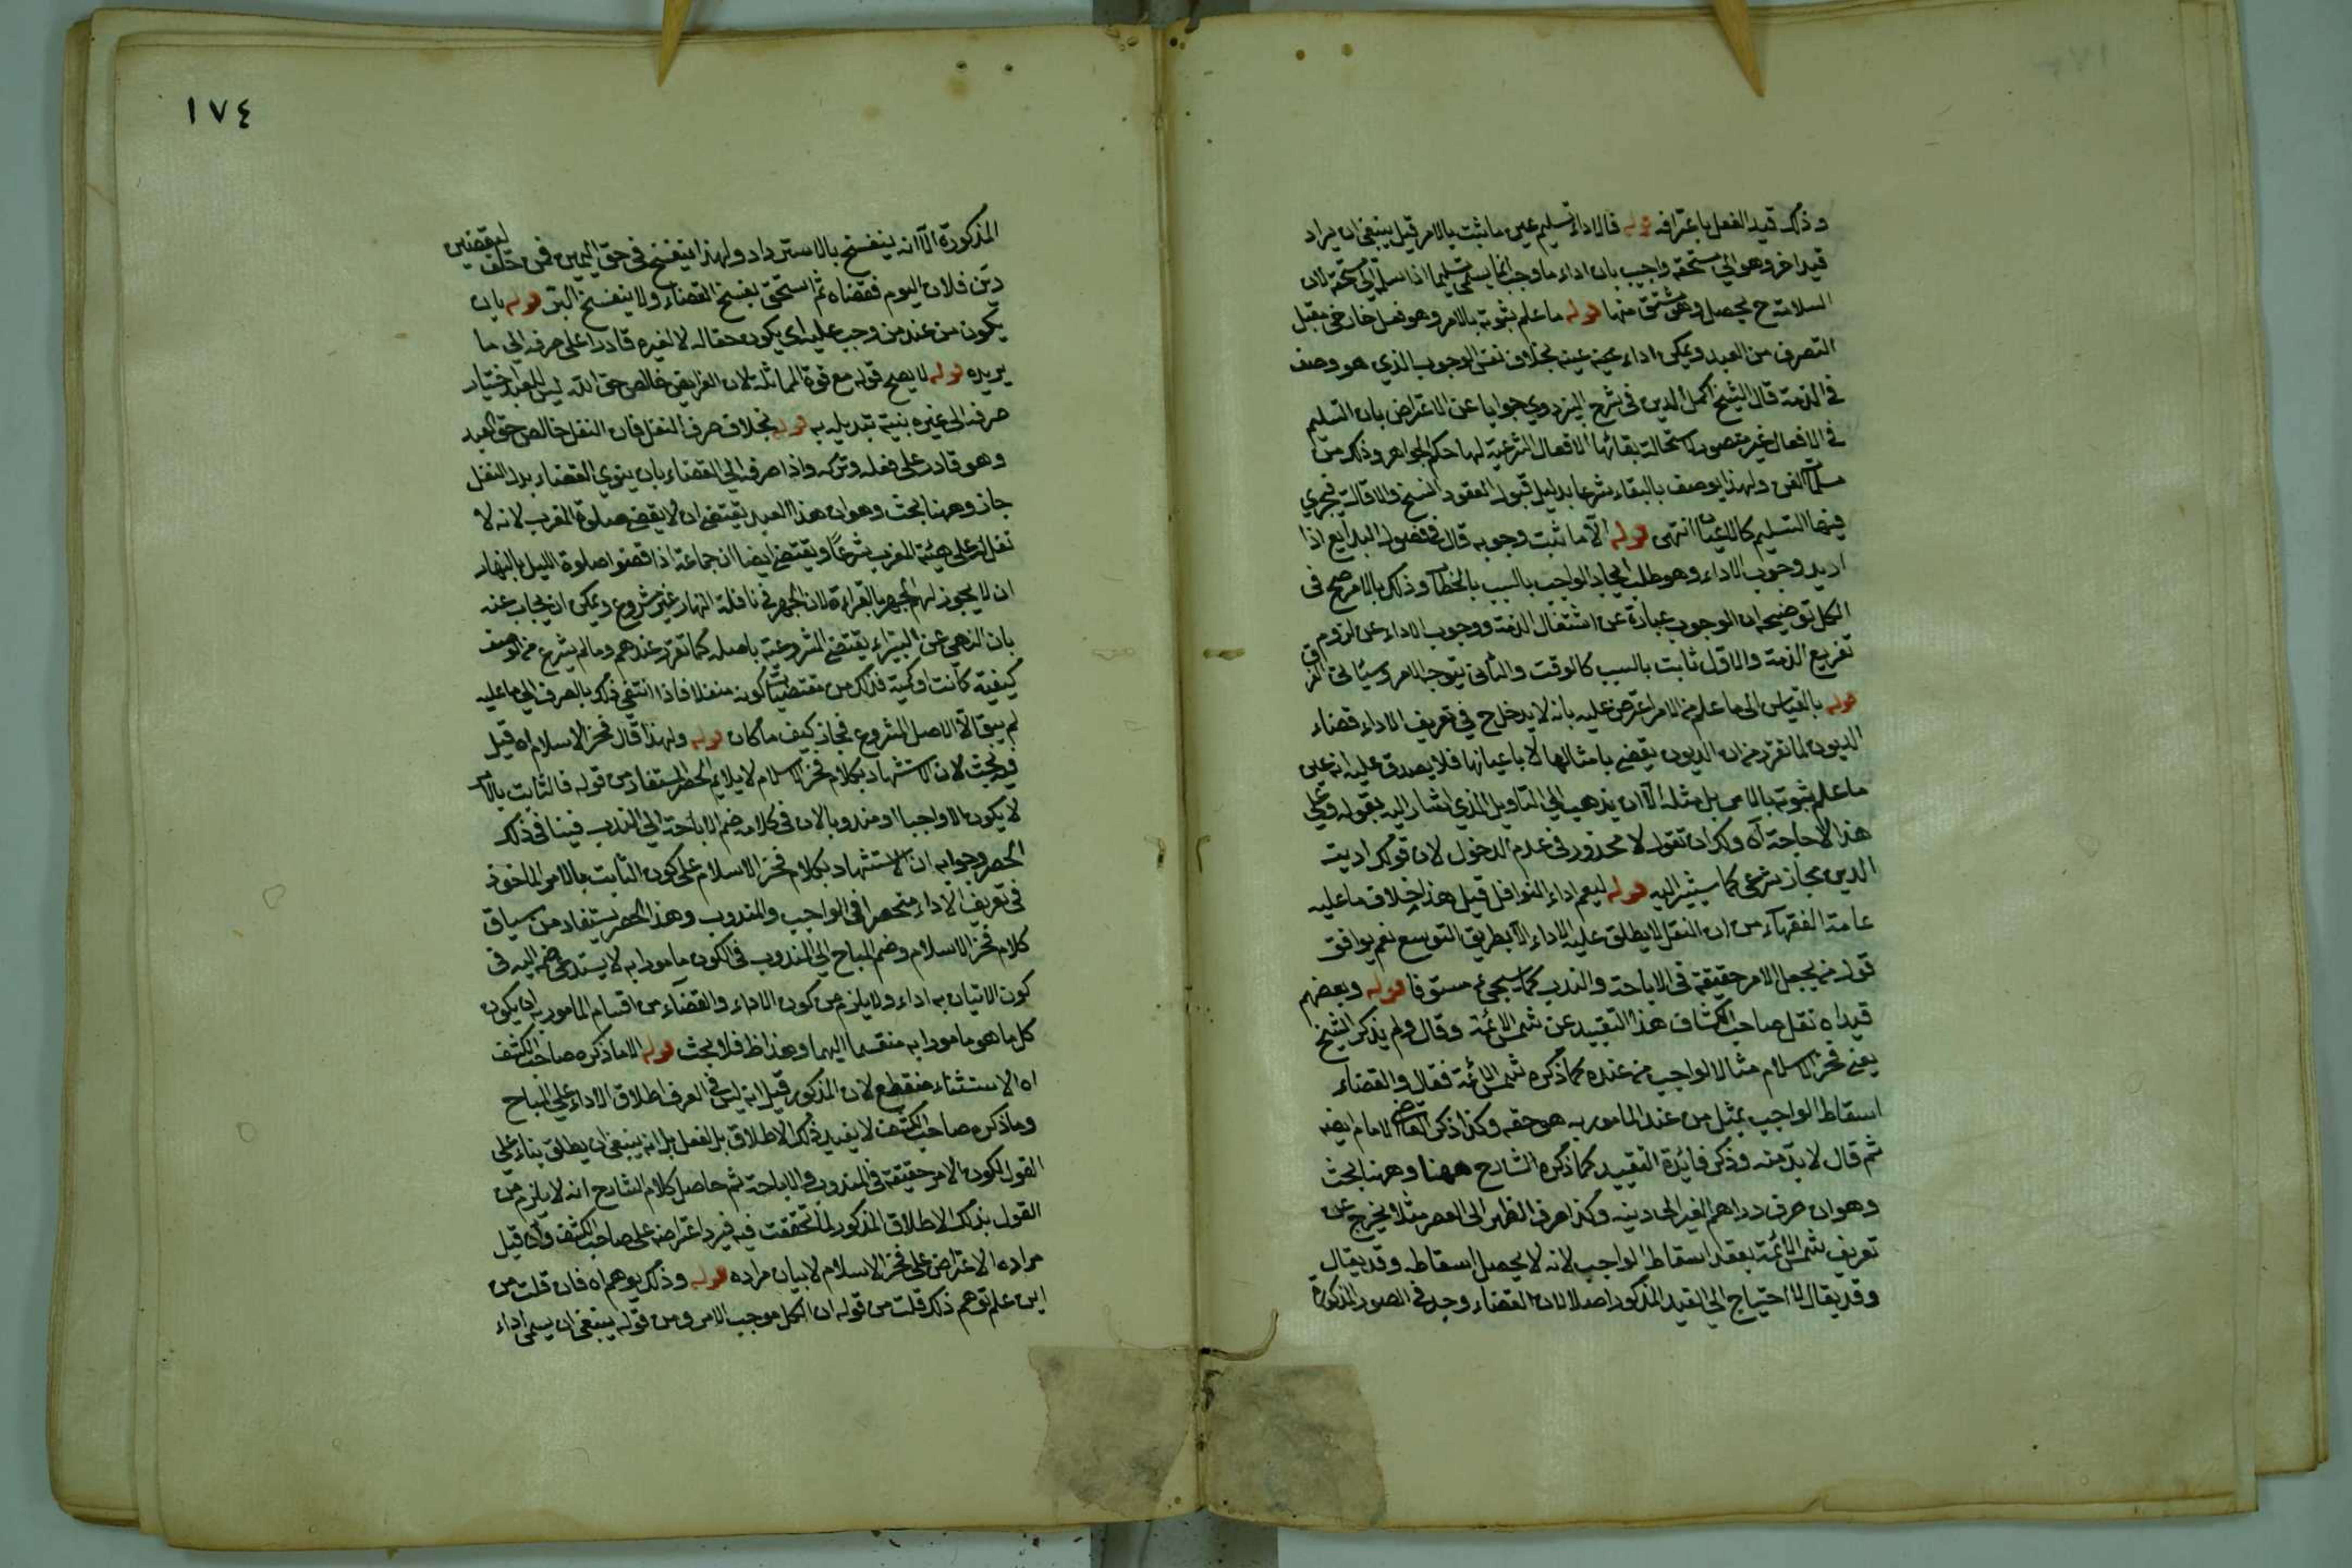 وذلك قيد الفعل باعترافه قوله فالاداء تسليم عين ما ثبت بالامر قيل ينبغي ان يراد
قيد اخر وهو الى مستحقه واجيب بان اداء ما وجب انما يسمى تسليما اذا سلم الى مستحقه لان
السلامة ح يحصل وهو مشتق منها قوله ما علم ثبوته بالامر وهو فعل خارجي مقبل
التصرف من العبد ويمكن اداء عينه بخلاف نفس الوجوب الذي هو وصف
في الذمة قال الشيخ اكمل الدين في شرح البزدوي جوابا عن الاعتراض بان التسليم
في الافعال غير متصور لاستحالة بقائها الافعال الشرعية لها حكم الجواهر وذلك من
مسلمات الفن ولهذا يوصف بالبقاء شرعا بدليل قبول العقود الفسخ والاقالة فيجري
فيها التسليم كالاعيان انتهى قوله الا ما ثبت وجوبه قال في فصول البدايع اذا
اريد وجوب الاداء وهو طلب ايجاد الواجب بالسبب بالخطاب وذلك بالامر صح في
الكل توضيحه ان الوجوب عبارة عن اشتغال الذمة ووجوب الاداء عن لزوم
تفريغ الذمة والاول ثابت بالسبب كالوقت والثاني بتوجه الامر وسيأتي الفرق
قوله بالقياس الى ما علم من الامر اعترض عليه بانه لا يدخل ح في تعريف الاداء قضاء
الديون لما تقرر من ان الديون يقضى بامثالها لا باعيانها فلا يصدق عليه انه عين
ما علم ثبوته بالامر بل مثله الا ان يذهب الى التاويل الذي اشار اليه بقوله وعلى
هذا لا حاجة اه ولك ان تقول لا محذور في عدم الدخول لان قولك اديت
الدين مجاز شرعي كما سيشير اليه قوله ليعم اداء النوافل قيل هذا خلاف ما عليه
عامة الفقهاء من ان النفل لا يطلق عليه الاداء الا بطريق التوسع نعم يوافق
قول من يجعل الامر حقيقة في الاباحة والندب كما سيجيء مستوفا قوله وبعضهم
قيد اه نقل صاحب الكشاف هذا التقييد عن شمس الائمة وقال ولم يذكر الشيخ
يعني فخر الاسلام مثال الواجب من عنده كما ذكره شمس الائمة فقال والقضاء
اسقاط الواجب بمثل من عند المامور به هو حقه وكذا ذكر القاضي الامام ايضا
ثم قال لا بد منه وذكر فايدة التقييد كما ذكره الشارح ههنا وههنا بحث
وهو ان صرف دراهم الغير الى دينه وكذا صرف الظهر الى العصر مثلا يخرج عن
تعريف شمس الائمة بعقد اسقاط الواجب لانه لا يحصل اسقاطه وقد يقال
وقد يقال لا احتياج الى القيد المذكور اصلا لان القضاء وجد في الصور المذكورة
١٧٤
المذكورة الا انه ينفسخ بالاسترداد ولهذا ينفسخ في حق اليمين فمن حلف ليقضين
دين فلان اليوم فقضاه ثم استحق يفسخ القضاء ولا ينفسخ البر قوله بان
يكون من عند من وجب عليه اي يكون حقا له لا لغيره قادرا على صرفه الى ما
يريده قوله لا يصح قوله مع قوة المماثلة لان الفرايض خالص حق الله ليس للعبد اختيار
صرفه الى غيره بنية تبديله به قوله بخلاف صرف النفل فان النفل خالص حق العبد
وهو قادر على فعله وتركه واذا صرفه الى القضاء بان ينوي القضاء بدل النفل
جاز وههنا بحث وهو ان هذا العبد يقتضي ان لا يقضي صلوة المغرب لانه لا
نفل له على هيئة المغرب شرعا ويقتضي ايضا ان جماعة اذا قضوا صلوة الليل بالنهار
ان لا يجوز لهم الجهر بالقراءة لان الجهر في نافلة النهار غير مشروع ويمكن ان يجاب عنه
بان النهي عن البتيراء يقتضي المشروعية باصله كما تقرر عندهم وما لم يشرع من وصف
كيفية كانت او كمية فذلك من مقتضيات كونه متنفلا فاذا انتفى ذلك بالصرف الى ما عليه
لم يبق الا الاصل المشروع فجاز كيف ما كان قوله ولهذا قال فخر الاسلام اه قيل
فيه بحث لان الاستشهاد بكلام فخر الاسلام لا يلايم الحصر المستفاد من قوله فالثابت بالامر
لا يكون الا واجبا او مندوبا لان في كلامه ضم الاباحة الى الندب فينافي ذلك
الحصر وجوابه ان الاستشهاد بكلام فخر الاسلام على كون الثابت بالامر الماخوذ
في تعريف الاداء منحصرا في الواجب والمندوب وهذا الحصر يستفاد من سياق
كلام فخر الاسلام وضم المباح الى المندوب في الكون مامورا به لا يستدعي ضمه اليه في
كون الاتيان به اداء ولا يلزم من كون الاداء والقضاء من اقسام المامور به ان يكون
كل ما هو مامورا به منقسما اليهما وهذا ظ فلا بحث قوله الا ما ذكره صاحب الكشف
اه الاستثناء منقطع لان المذكور قبل انه ليس في العرف اطلاق الاداء على المباح
وما ذكره صاحب الكشف لا يفيد ذلك الاطلاق بالفعل بل انه ينبغي ان يطلق بناء على
القول بكون الامر حقيقة في المندوب والاباحة ثم حاصل كلام الشارح انه لا يلزم من
القول بذلك الاطلاق المذكور لما تحققت فيه فيرد اعتراضه على صاحب الكشف وان قيل
مراده الاعتراض على فخر الاسلام لا بيان مراده قوله وذلك يوهم اه فان قلت من
اين علم توهم ذلك قلت من قوله ان الكل موجب الامر ومن قوله ينبغي ان يسمى اداء